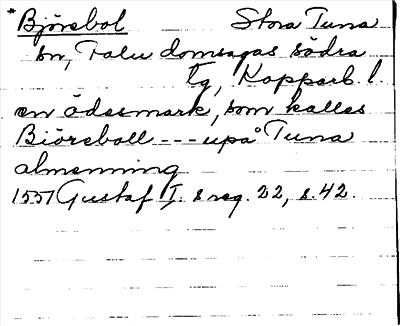 *Björsbol Stora Tuna
sn, Falu domsagas södra
tg, Kopparb. l.
en ödesmark, som kalles
Biörsboll --- upå Tuna
almenning
1557 Gustaf I. s reg. 22, s. 42.